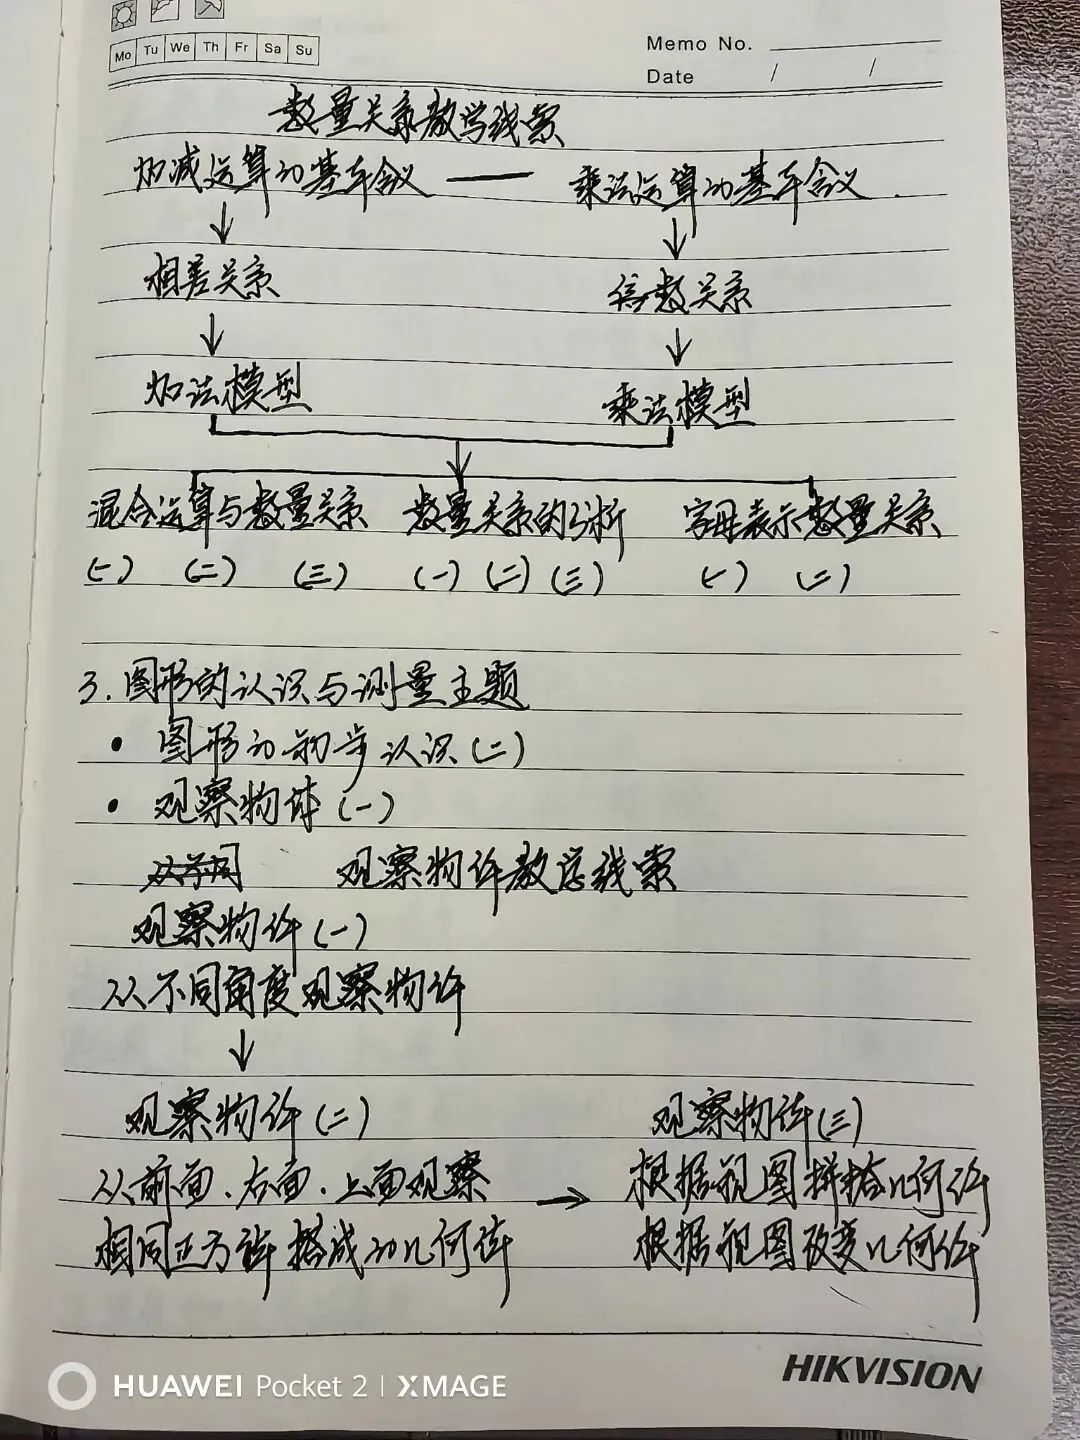 Mo Tu We Th Fr Sa Su
Memo No.
Date / /
数量关系教学线索
加减运算的基本含义 — 乘法运算的基本含义
↓ ↓
相差关系 倍数关系
↓ ↓
加法模型 乘法模型
↓
混合运算与数量关系 数量关系的分析 字母表示数量关系
(一) (二) (三) (一) (二) (三) (一) (二)
3.图形的认识与测量主题
• 图形的初步认识(二)
• 观察物体(一)
从不同 观察物体教学线索
观察物体(一)
从不同角度观察物体
↓
观察物体(二) 观察物体(三)
从前面、右面、上面观察 → 根据视图拼搭几何体
相同正方体搭成的几何体 根据视图改变几何体
HIKVISION
HUAWEI Pocket 2 | XMAGE